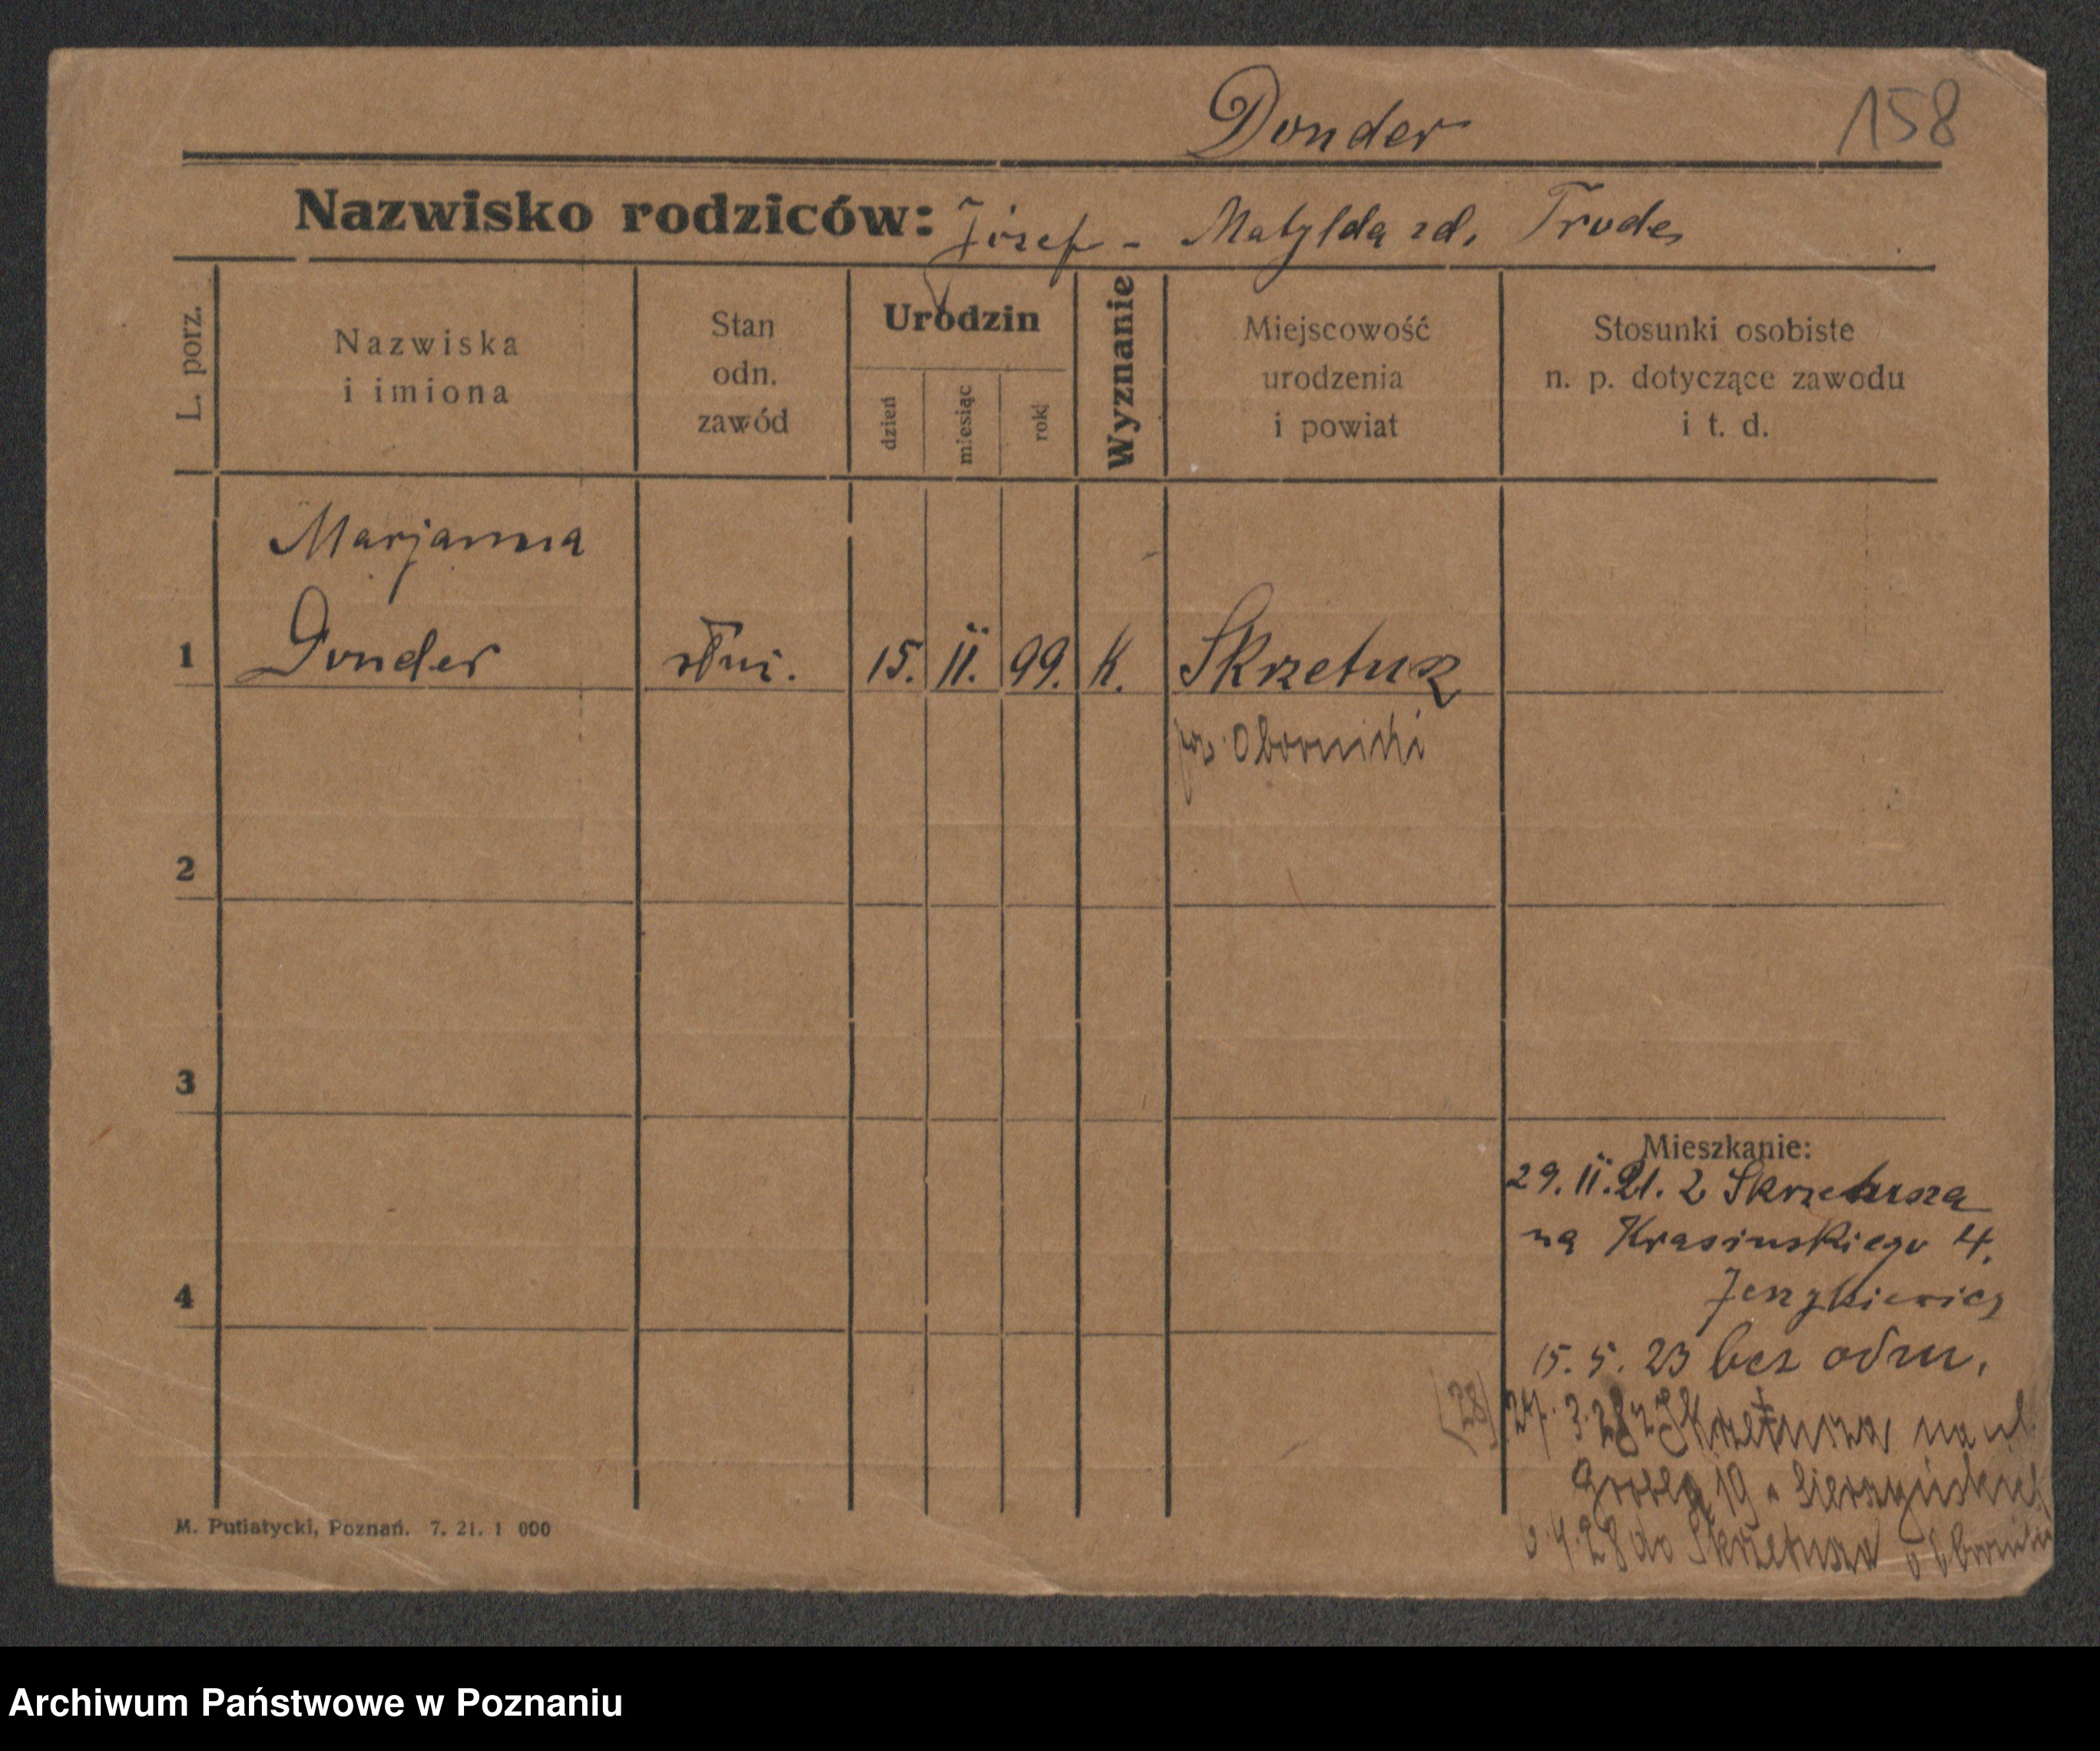 Donder
158
Nazwisko rodziców: Józef - Matylda zd. Trude
L. porz.
Nazwiska
i imiona
Stan
odn.
zawód
Urodzin
dzień
miesiąc
rok
Wyznanie
Miejscowość
urodzenia
i powiat
Stosunki osobiste
n. p. dotyczące zawodu
i t. d.
Marjanna
1 Donder służ. 15. II. 99. K. Skrzetusz
pow. Obornicki
2
3
Mieszkanie:
29. II. 21. z Skrzetusza
na Krasinskiego 4.
4
15. 5. 23 bez odm.
(28) 24. 3. 28 z Skrzetusza na ul.
Grobla 19
4. 28 do Skrzetusza
M. Putiatycki, Poznań. 7. 21. 1 000
Archiwum Państwowe w Poznaniu